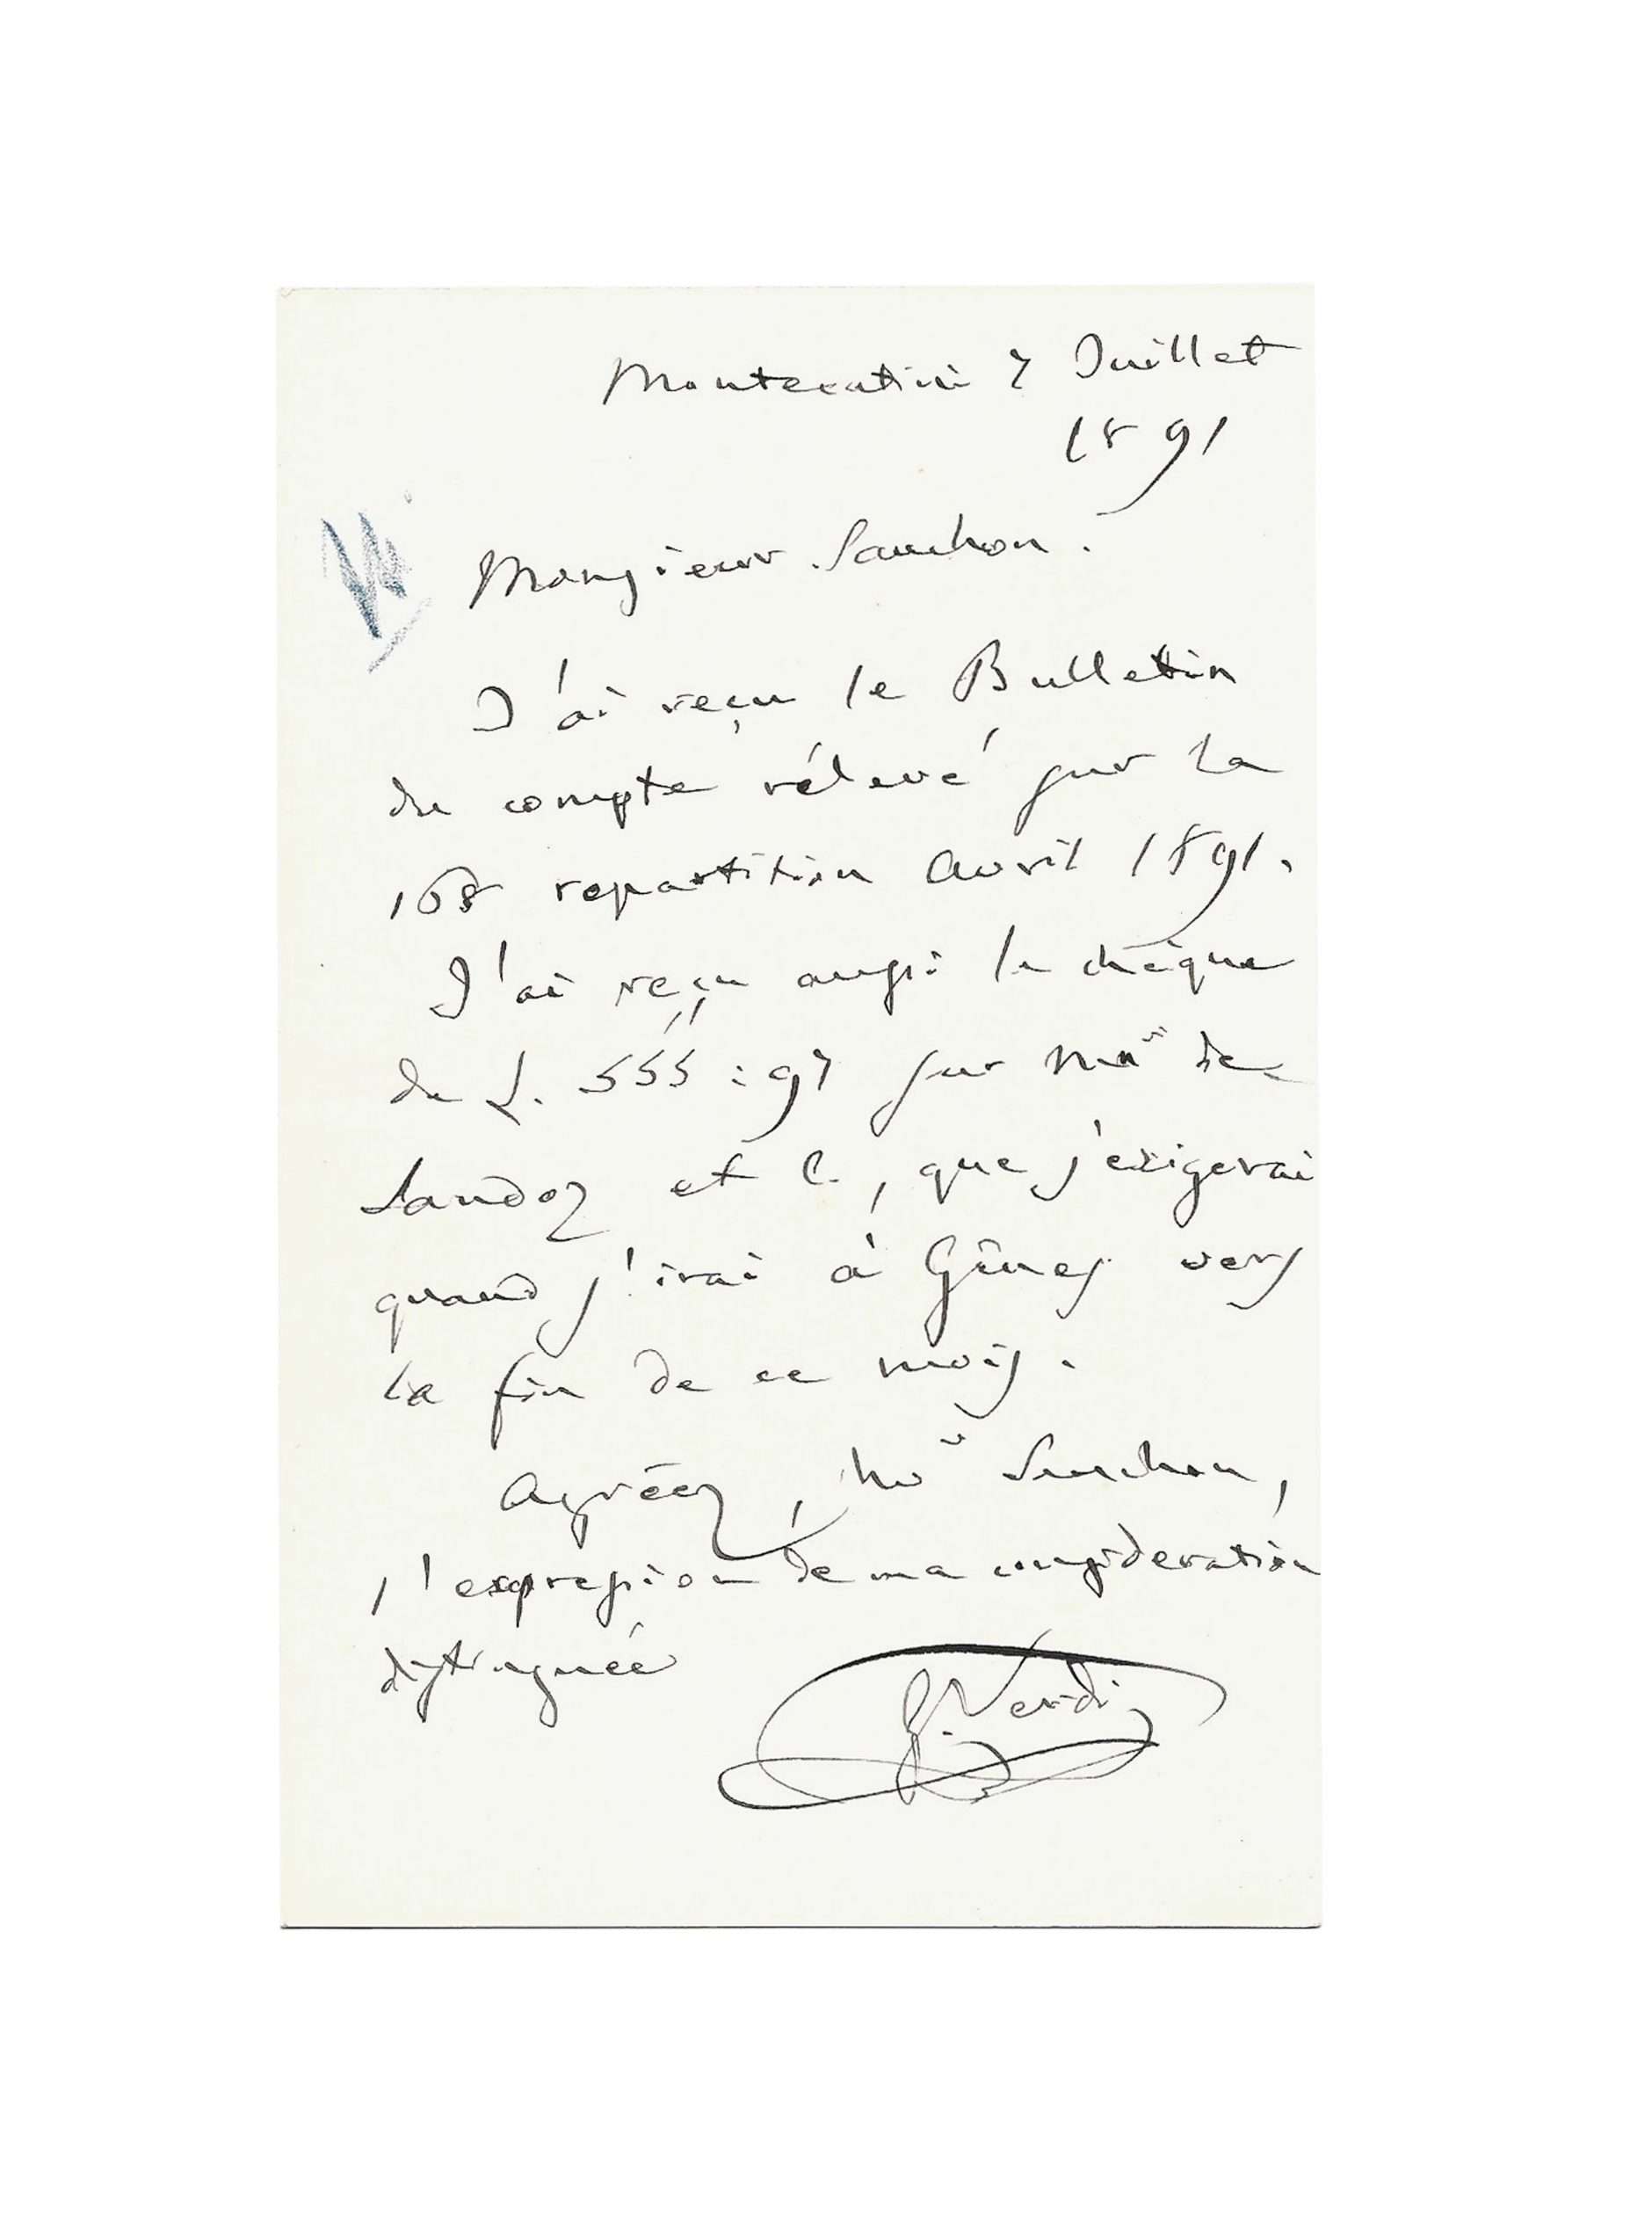 Montecatini 7 Juillet
1891
Monsieur Souchon.
J'ai reçu le Bulletin
du compte rélevé sur la
168 repartition Avril 1891.
J'ai reçu aussi le chèque
de L. 555:97 sur de
Landoz et C., que j'exigerai
quand j'irai à Gênes vers
la fin de ce mois.
Agréez, Souchon,
l'expression de ma consideration
distinguée
G. Verdi